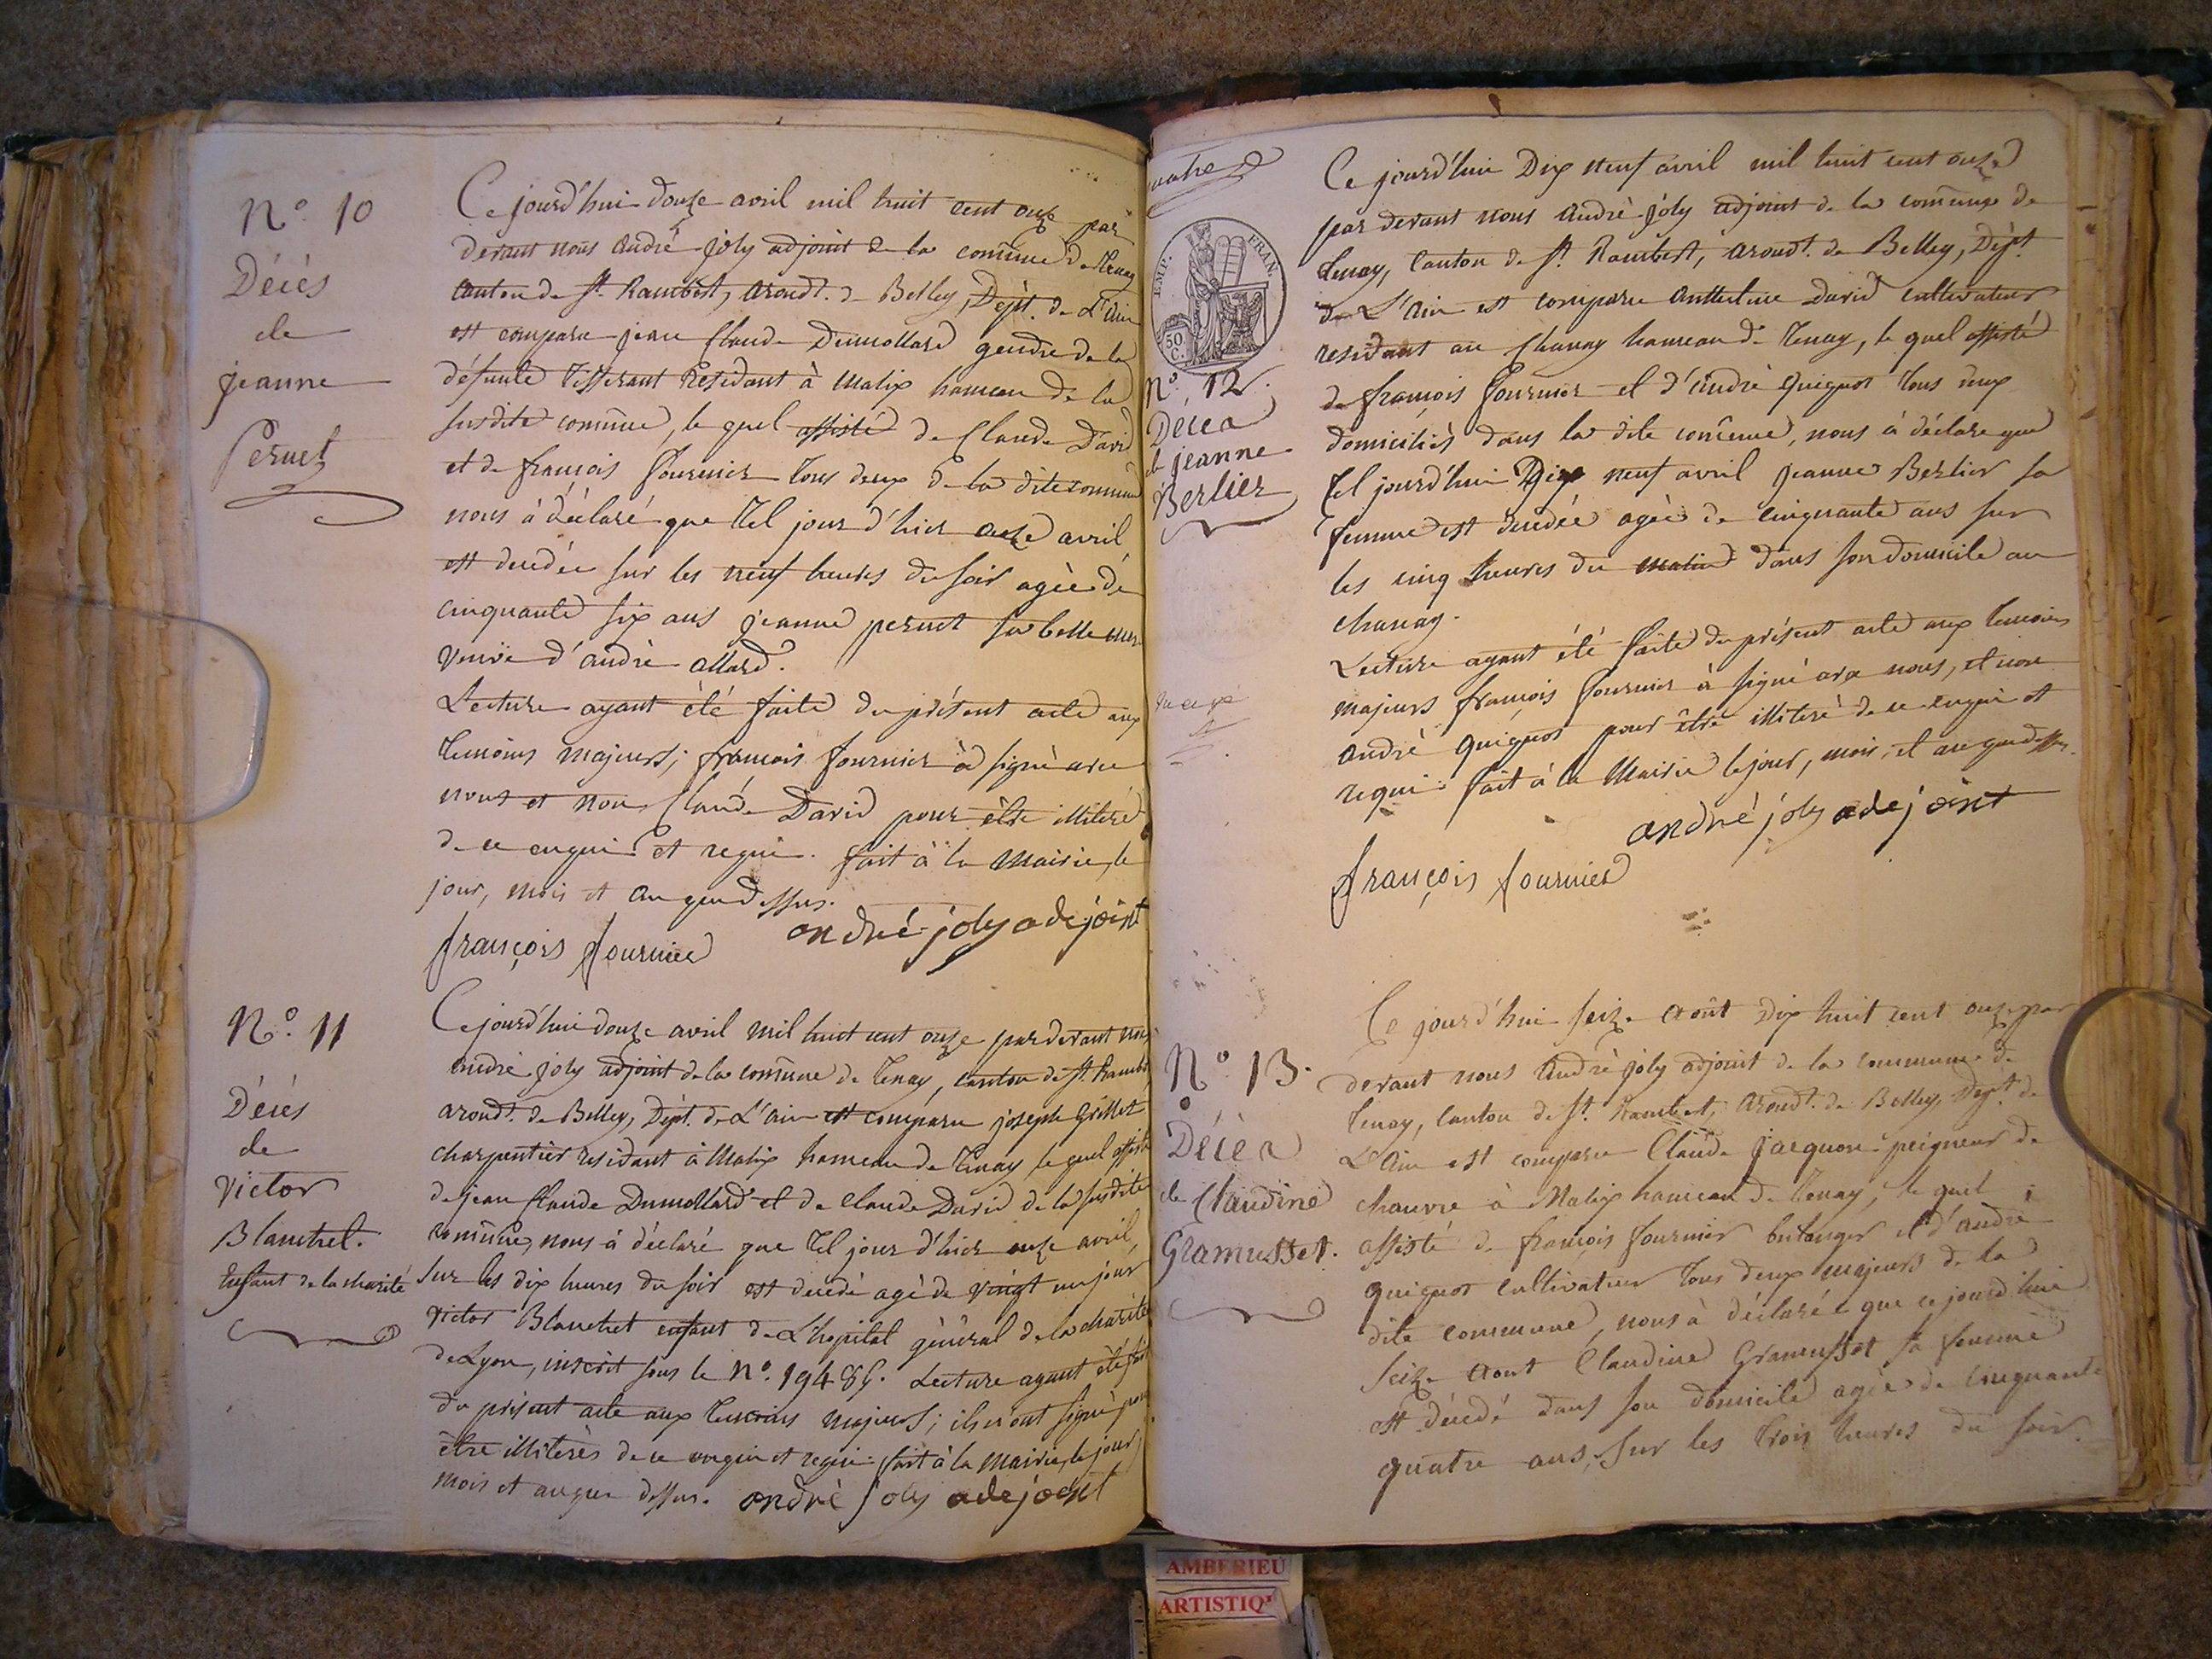 N.° 10
Décès
de
jeanne
Pernet
Ce jourd'hui douze avril mil huit cent onze par
devant nous andré joly adjoint de la comune de Tenay
canton de St. Rambert, arondt. de Belley, Dépt. de L'ain
est comparu jean Claude Dumollard gendre de la
défunte Tisserant Residant à Malix hameau de la
susdite comune, le quel assisté de Claude David
et de françois fournier tous deux de la dite commune
nous à déclaré que Tel jour d'hier onze avril
est decedée sur les neuf heures du soir agée de
cinquante six ans jeanne pernet sa belle mere
veuve d'andré allard.
Lecture ayant été faite du présent acte aux
temoins majeurs; françois fournier à signé avec
nous et non Claude David pour être illiteré
de ce enquis et requis. fait à la Mairie, le
jour, mois et an que dessus.
françois fournier
andré joly adejoint
N.° 11
Décés
de
Victor
Blanchet.
Enfant de la charité
Ce jourd'hui douze avril mil huit cent onze par devant nous
andré joly adjoint de la comune de Tenay, canton de St. Rambe
arondt. de Belley, Dépt. de L'ain est comparu joseph Grillet
charpentier residant à Malix hameau de Tenay le quel assisté
de jean Claude Dumollard et de Claude David de la susdite
comune, nous à déclaré que Tel jour d'hier onze avril,
sur les dix heures du soir est decedé agé de vingt un jour
Victor Blanchet enfant de L'hopital général de la charité
de Lyon, inscrit sous le N°. 19486. Lecture ayant été fait
du présent acte aux temoins majeurs; ils n'ont signé pour
être illiterés de ce enquis et requis. fait à la Mairie, le jour
mois et an que dessus. andré joly adejoint
EMP. FRAN.
50
C.
N.° 12.
Décea
de jeanne
Berlier
Ce jourd'hui Dix neuf avril mil huit cent onze
par devant nous andré joly adjoint de la comune de
Tenay, Canton de St. Rambert, arondt. de Belley, Dépt.
de L'ain est comparu Anthelme David cultivateur
residant au Chanay hameau de Tenay, le quel assisté
de françois fournier et d'andré quignot tous deux
domiciliés dans la dite comune, nous à déclaré que
Tel jourd'hui Dix neuf avril jeanne Berlier sa
femme est decedée agée de cinquante ans sur
les cinq heures du matin dans son domicile au
chanay.
Lecture ayant été faite du présent acte aux temoins
majeurs françois fournier à signé avec nous, et non
andré quignot pour être illiteré de ce enquis et
requis. fait à la Mairie le jour, mois, et an que dessus.
andré joly adejoint
françois fournier
N.° 13.
Décéa
de Claudine
Gramusset.
Ce jourd'hui seize août Dix huit cent onze par
devant nous André joly adjoint de la commune de
Tenay, Canton de St. Rambert, arondt. de Belley, Dept. de
L'Ain est comparu Claude jacquon peigneur de
chanvre à Malix hameau de Tenay, le quel
assisté de françois fournier bulanger et d'andré
quignot cultivateur tous deux majeurs de la
dite commune, nous à déclaré que ce jourd'hui
seize aout Claudine Gramusset sa femme
est décedé dans son domicile agée de cinquante
quatre ans, sur les trois heures du soir.
AMBERIEU
ARTISTIQ